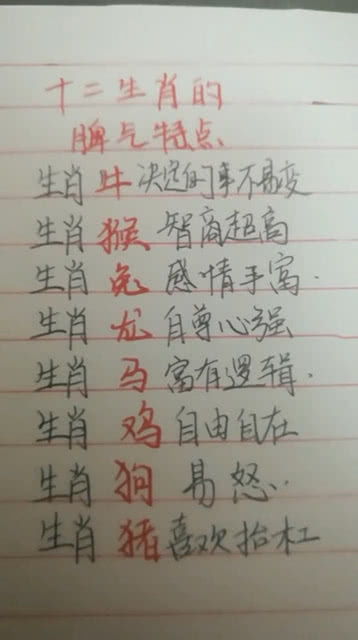 十二生肖的
脾气特点
生肖牛决定的事不易变
生肖猴智商超高
生肖兔感情丰富.
生肖龙自尊心强
生肖马富有逻辑.
生肖鸡自由自在
生肖狗易怒..
生肖猪喜欢抬杠